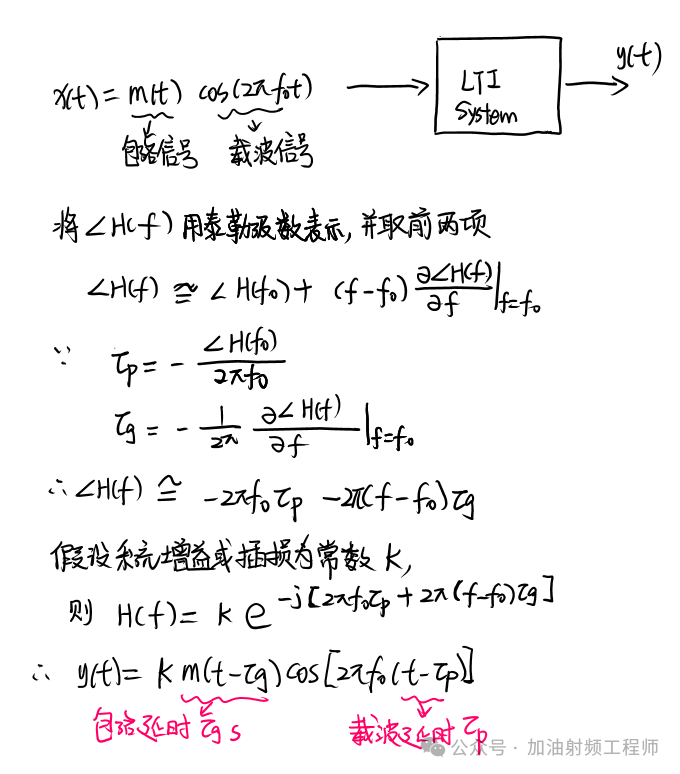 x(t) = m(t) cos(2πf₀t) → LTI System → y(t)
包络信号 载波信号
将∠H(f)用泰勒级数表示,并取前两项
∠H(f) ≅ ∠H(f₀) + (f-f₀) ∂∠H(f)/∂f |f=f₀
∵ τp = - ∠H(f₀)/2πf₀
τg = - 1/2π ∂∠H(f)/∂f |f=f₀
∴ ∠H(f) ≅ -2πf₀τp - 2π(f-f₀)τg
假设系统增益或插损为常数K,
则 H(f) = K e^-j[2πf₀τp + 2π(f-f₀)τg]
∴ y(t) = K m(t-τg) cos[2πf₀(t-τp)]
包络延时 τg s 载波延时 τp
公众号 · 加油射频工程师